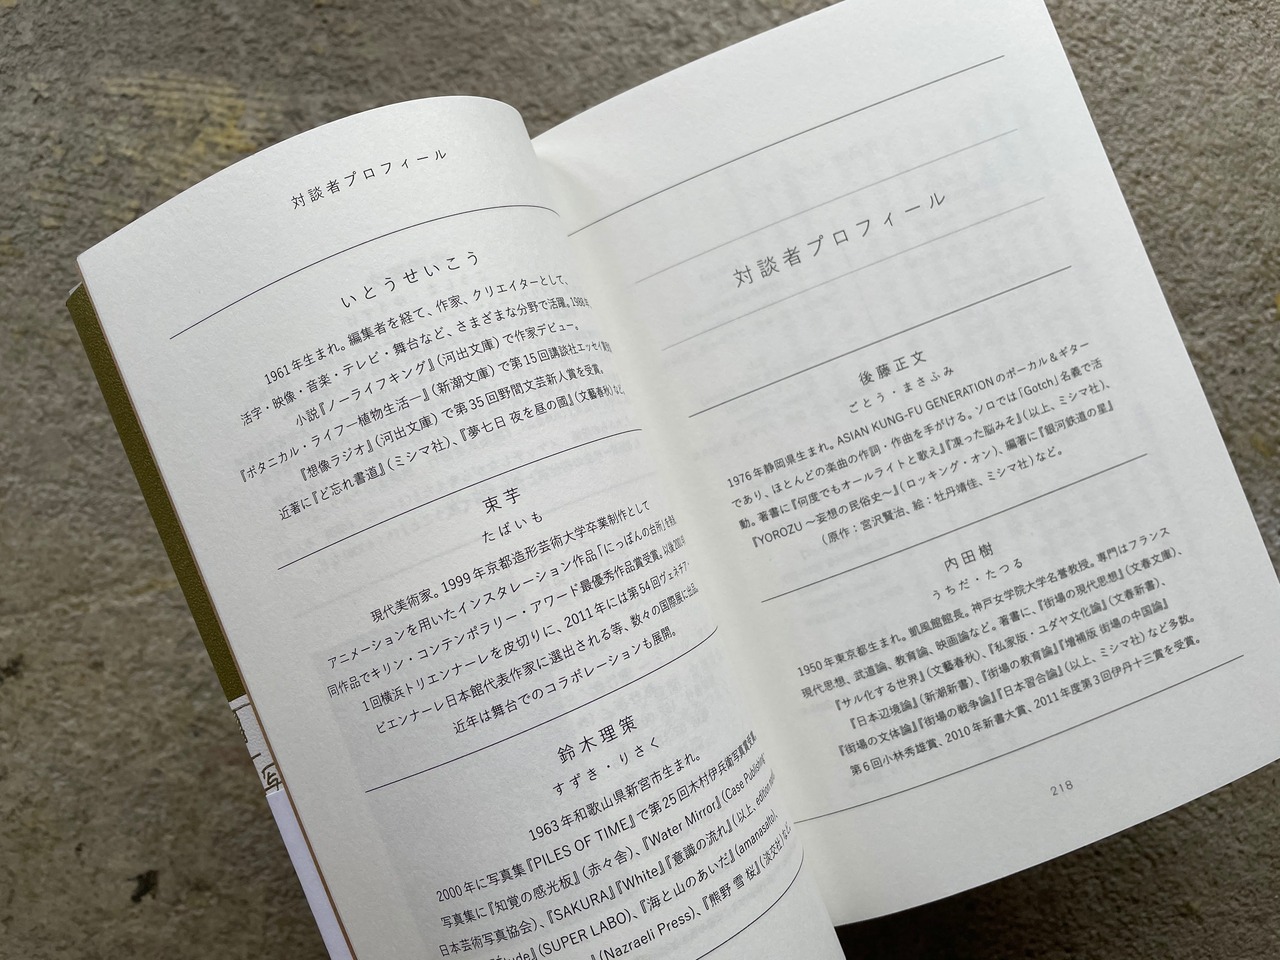 対談者プロフィール
いとうせいこう
1961年生まれ。編集者を経て、作家、クリエイターとして、
活字・映像・音楽・テレビ・舞台など、さまざまな分野で活躍。1988年、
小説『ノーライフキング』(河出文庫)で作家デビュー。
『ボタニカル・ライフ―植物生活―』(新潮文庫)で第15回講談社エッセイ賞受賞、
『想像ラジオ』(河出文庫)で第35回野間文芸新人賞を受賞。
近著に『ど忘れ書道』(ミシマ社)、『夢七日 夜を昼の國』(文藝春秋)など。
束芋
たばいも
現代美術家。1999年京都造形芸術大学卒業制作として
アニメーションを用いたインスタレーション作品「にっぽんの台所」を
同作品でキリン・コンテンポラリー・アワード最優秀作品賞受賞。以後2001年
1回横浜トリエンナーレを皮切りに、2011年には第54回ヴェネチア・
ビエンナーレ日本館代表作家に選出される等、数々の国際展に出品。
近年は舞台でのコラボレーションも展開。
鈴木理策
すずき・りさく
1963年和歌山県新宮市生まれ。
2000年に写真集『PILES OF TIME』で第25回木村伊兵衛写真賞受賞。
写真集に『知覚の感光板』(赤々舎)、『Water Mirror』(Case Publishing
日本芸術写真協会)、『SAKURA』『White』『意識の流れ』(以上、edition
ude』(SUPER LABO)、『海と山のあいだ』(amanasalto)、
』(Nazraeli Press)、『熊野 雪 桜』(淡交社)など。
対談者プロフィール
後藤正文
ごとう・まさふみ
1976年静岡県生まれ。ASIAN KUNG-FU GENERATIONのボーカル&ギター
であり、ほとんどの楽曲の作詞・作曲を手がける。ソロでは「Gotch」名義で活
動。著書に『何度でもオールライトと歌え』『凍った脳みそ』(以上、ミシマ社)、
『YOROZU 〜妄想の民俗史〜』(ロッキング・オン)、編著に『銀河鉄道の星』
(原作:宮沢賢治、絵:牡丹靖佳、ミシマ社)など。
内田樹
うちだ・たつる
1950年東京都生まれ。凱風館館長。神戸女学院大学名誉教授。専門はフランス
現代思想、武道論、教育論、映画論など。著書に、『街場の現代思想』(文春文庫)、
『サル化する世界』(文藝春秋)、『私家版・ユダヤ文化論』(文春新書)、
『日本辺境論』(新潮新書)、『街場の教育論』『増補版 街場の中国論』
『街場の文体論』『街場の戦争論』『日本習合論』(以上、ミシマ社)など多数。
第6回小林秀雄賞、2010年新書大賞、2011年度第3回伊丹十三賞を受賞。
218